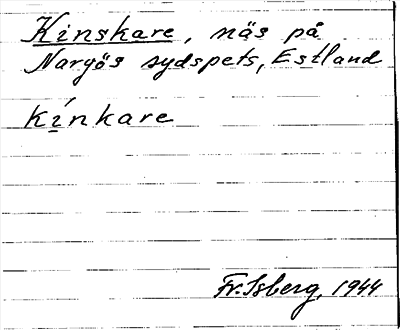 Kinskare, näs på
Nargös sydspets, Estland
kínkare
Fr. Isberg, 1944